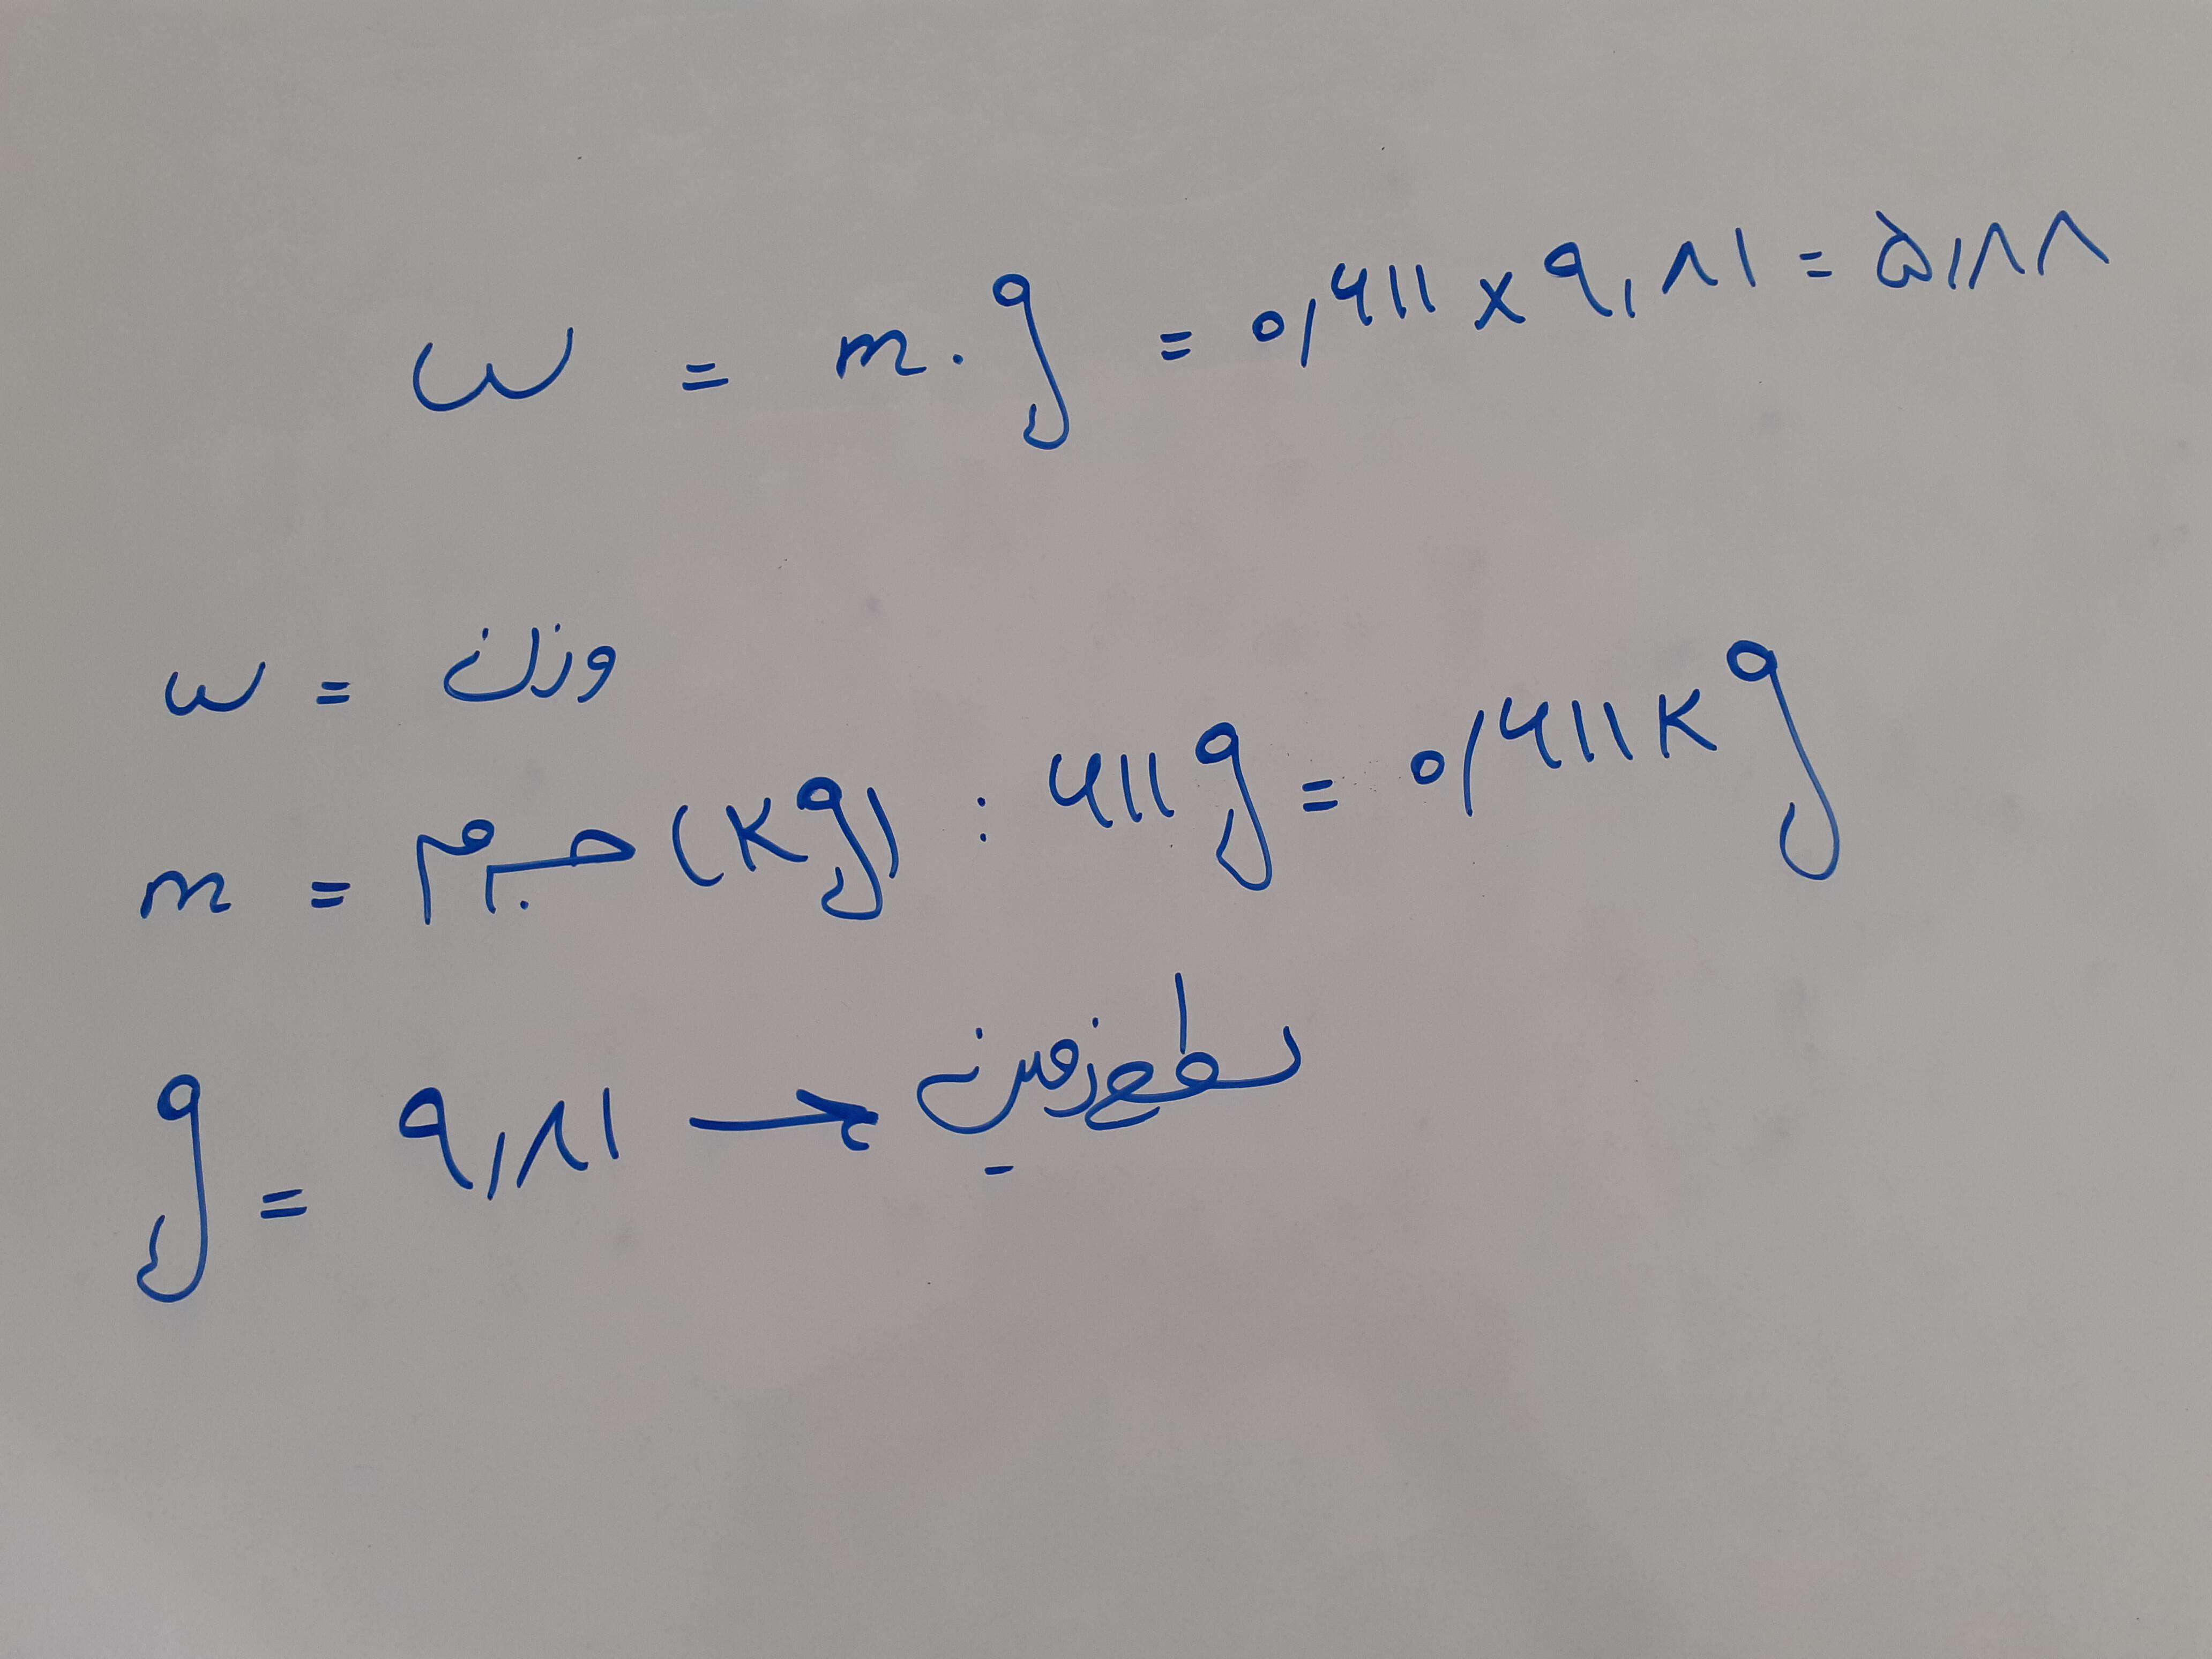 w = m.g = ۰,۶۱۱ × ۹,۸۱ = ۵,۸۸
w = وزن
m = جرم (Kg) : ۶۱۱g = ۰,۶۱۱Kg
g = ۹,۸۱ → سطح زمین